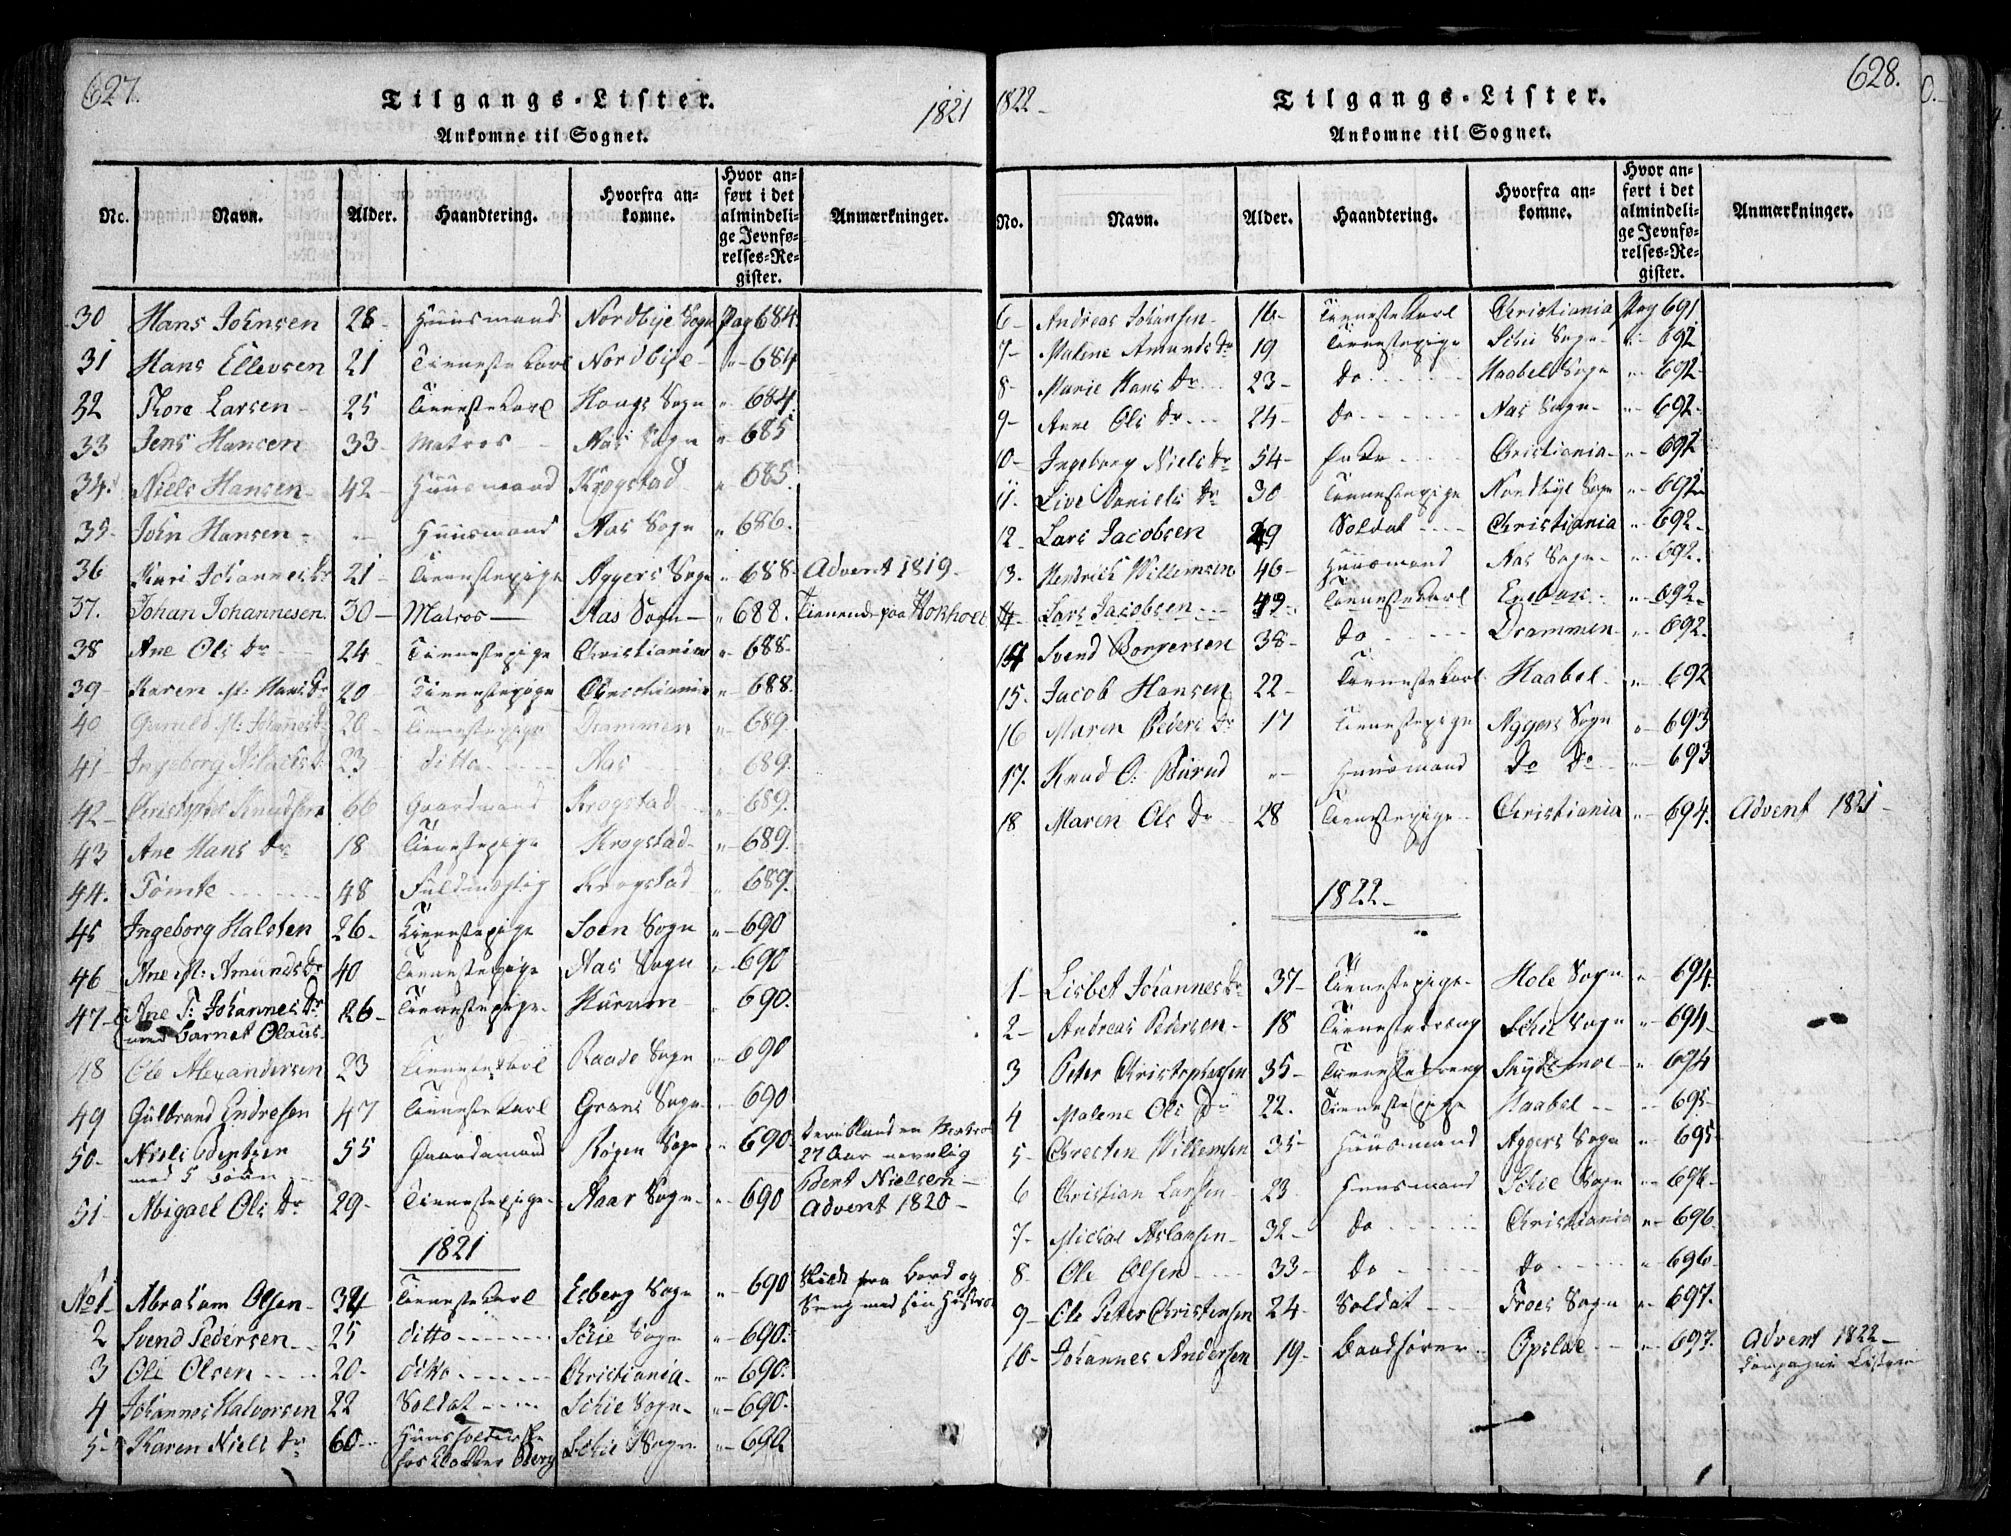 627.
Tilgangs-Lister.
1821
Ankomne til Sognet.
No. Navn. Alder. Haandtering. Hvorfra ankomne. Hvor anført i det almindelige Jevnførelses-Register. Anmærkninger.
30 Hans Johnsen 28 Huusmand Nordbye Sogn Pag 684
31 Hans Ellevsen 21 Tienestekarl Nordbye " 684
32 Thore Larsen 25 Tienestekarl Haugs Sogn " 684
33 Jens Hansen 33 Matros Aas Sogn " 685
34. Niels Hansen 42 Huusmand Krogstad " 685.
35 John Hansen - Huusmand Aas Sogn " 686.
36 Kari Johannesdr 21 Tienestepige Aggers Sogn " 688. Advent 1819
37. Johan Johannesen 30 Matros Aas Sogn " 688. Tienende paa Hokholt
38 Ane Ols Dr 24 Tienestepige Christiania " 688
39 Karen M: Hans Dr 20 Tienestepige Christiania " 688.
40 Gunild M: Johanes Dr 20 Tienestepige Drammen " 689.
41 Ingeborg Nilads D: 23 ditto Aas 689.
42 Christopher Knudsen 66 Gaardmand Krogstad 689.
43 Ane Hans Dr 18 Tienestepige Krogstad " 689.
44. Tömte 48 Fuldmægtig Krogstad " 689.
45 Ingeborg Halsten 26 Tienestepige Soen Sogn " 690
46 Ane M: Amunds Dr 40 Tienestepige Aas Sogn " 690
47 Ane T: Johannes Dr 26 Tienestepige Hurum 690.
med Barnet Olaus
48 Ole Alexandersen 23 Tienestekarl Raade Sogn " 690
49 Gulbrand Endresen 47 Tienestekarl Grans Sogn 690
50. Niels Bentzen 55 Gaardmand Røgen Sogn " 690. Deriblandt en Matros
med 5 Børn 27 Aar nevnlig
Bent Nielsen
51 Abigael Ols Dr 29 Tienestepige Haar Sogn " 690 Advent 1820
1821
No 1 Abraham Olsen 34 Tienestekarl Esberg Sogn " 690 Skildt fra Bord og
Seng med sin Hustroe
2 Svend Pedersen 25 ditto Schie Sogn " 690.
3 Ole Olsen 20 ditto Christiania " 690.
4 Johannes Halvorsen 22 Soldat Schie Sogn " 690.
5 Karen Niels Dr 60 Huusholderske Schie Sogn " 690
hos Klokker Oberg
628.
1822
Tilgangs-Lister.
Ankomne til Sognet.
No. Navn. Alder. Haandtering. Hvorfra ankomne. Hvor anført i det almindelige Jevnførelses-Register. Anmærkninger.
6 Andreas Johansen 16 Tienestekarl Christiania Pag 691
7 Malene Amunds Dr 19 Tienestepige Schie Sogn " 692
8 Marie Hans Dr 23 do Haabel Sogn " 692
9 Anne Ols Dr 24 do Aas Sogn " 692
10 Ingeborg Niels Dr 54 Enke Christiania " 692
11. Live Daniels Dr 30 Tienestepige Nordbye Sogn " 692
12 Lars Jacobsen 29 Soldat Christiania " 692
13. Hendrich Willemsen 46 Huusmand Aas Sogn " 692.
Lars Jacobsen Tienestekarl " 692
14 Svend Borgersen 38 do Drammen " 692.
15. Jacob Hansen 22 Tienestekarl Haabel " 692
16 Maren Peders Dr 17 Tienestepige Aggers Sogn " 693
17. Knud O: Burud " Huusmand Do Do " 693
18 Maren Ols Dr 28 Tienestepige Christiania " 694. Advent 1821
1822
1 Lisbet Johannes Dr 37 Tienestepige Hole Sogn " 694.
2 Andreas Pedersen 18 Tienestedreng Schie Sogn " 694
3 Peter Christophersen 35 Tienestedreng Skydsmoe " 694
4 Malene Ols Dr 22. Tienestepige Haabel " 695
5 Chresten Willemsen 35 Huusmand Aggers Sogn " 695
6 Christian Larsen 23 Huusmand Schie Sogn " 696
7 Michal Aslaksen 32 do Christiania " 696
8 Ole Olsen 33 do do " 696
9 Ole Peter Christensen 24 Soldat Froes Sogn " 697.
10 Johannes Andersen 19 Baadfører Opsloe " 697. Advent 1822